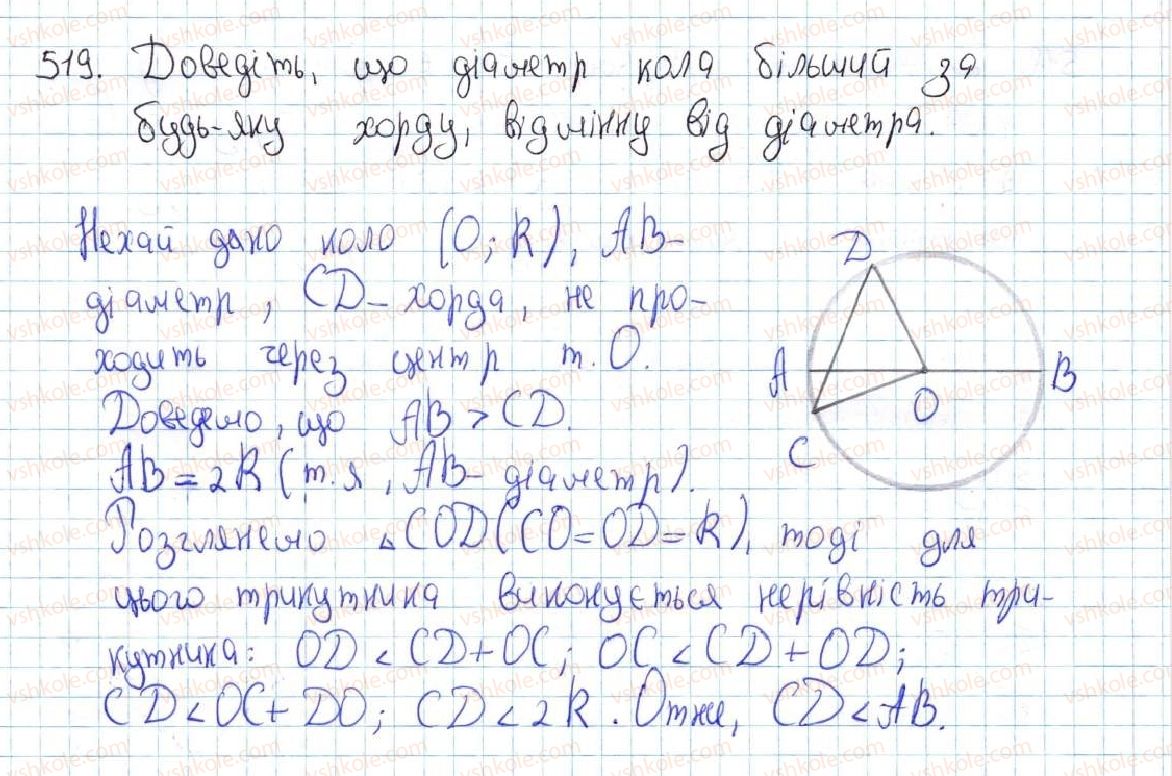 519. Доведіть, що діаметр кола більший за
будь-яку хорду, відмінну від діаметра.
Нехай дано коло (O; R), AB-
діаметр, CD - хорда, не про-
ходить через центр т. O.
Доведемо, що AB > CD.
AB = 2R (т.я, AB - діаметр).
Розглянемо △COD (CO = OD = R), тоді для
цього трикутника виконується нерівність три-
кутника: OD < CD + OC; OC < CD + OD;
CD < OC + DO; CD < 2R. Отже, CD < AB.
D
A
B
O
C
vshkole.com